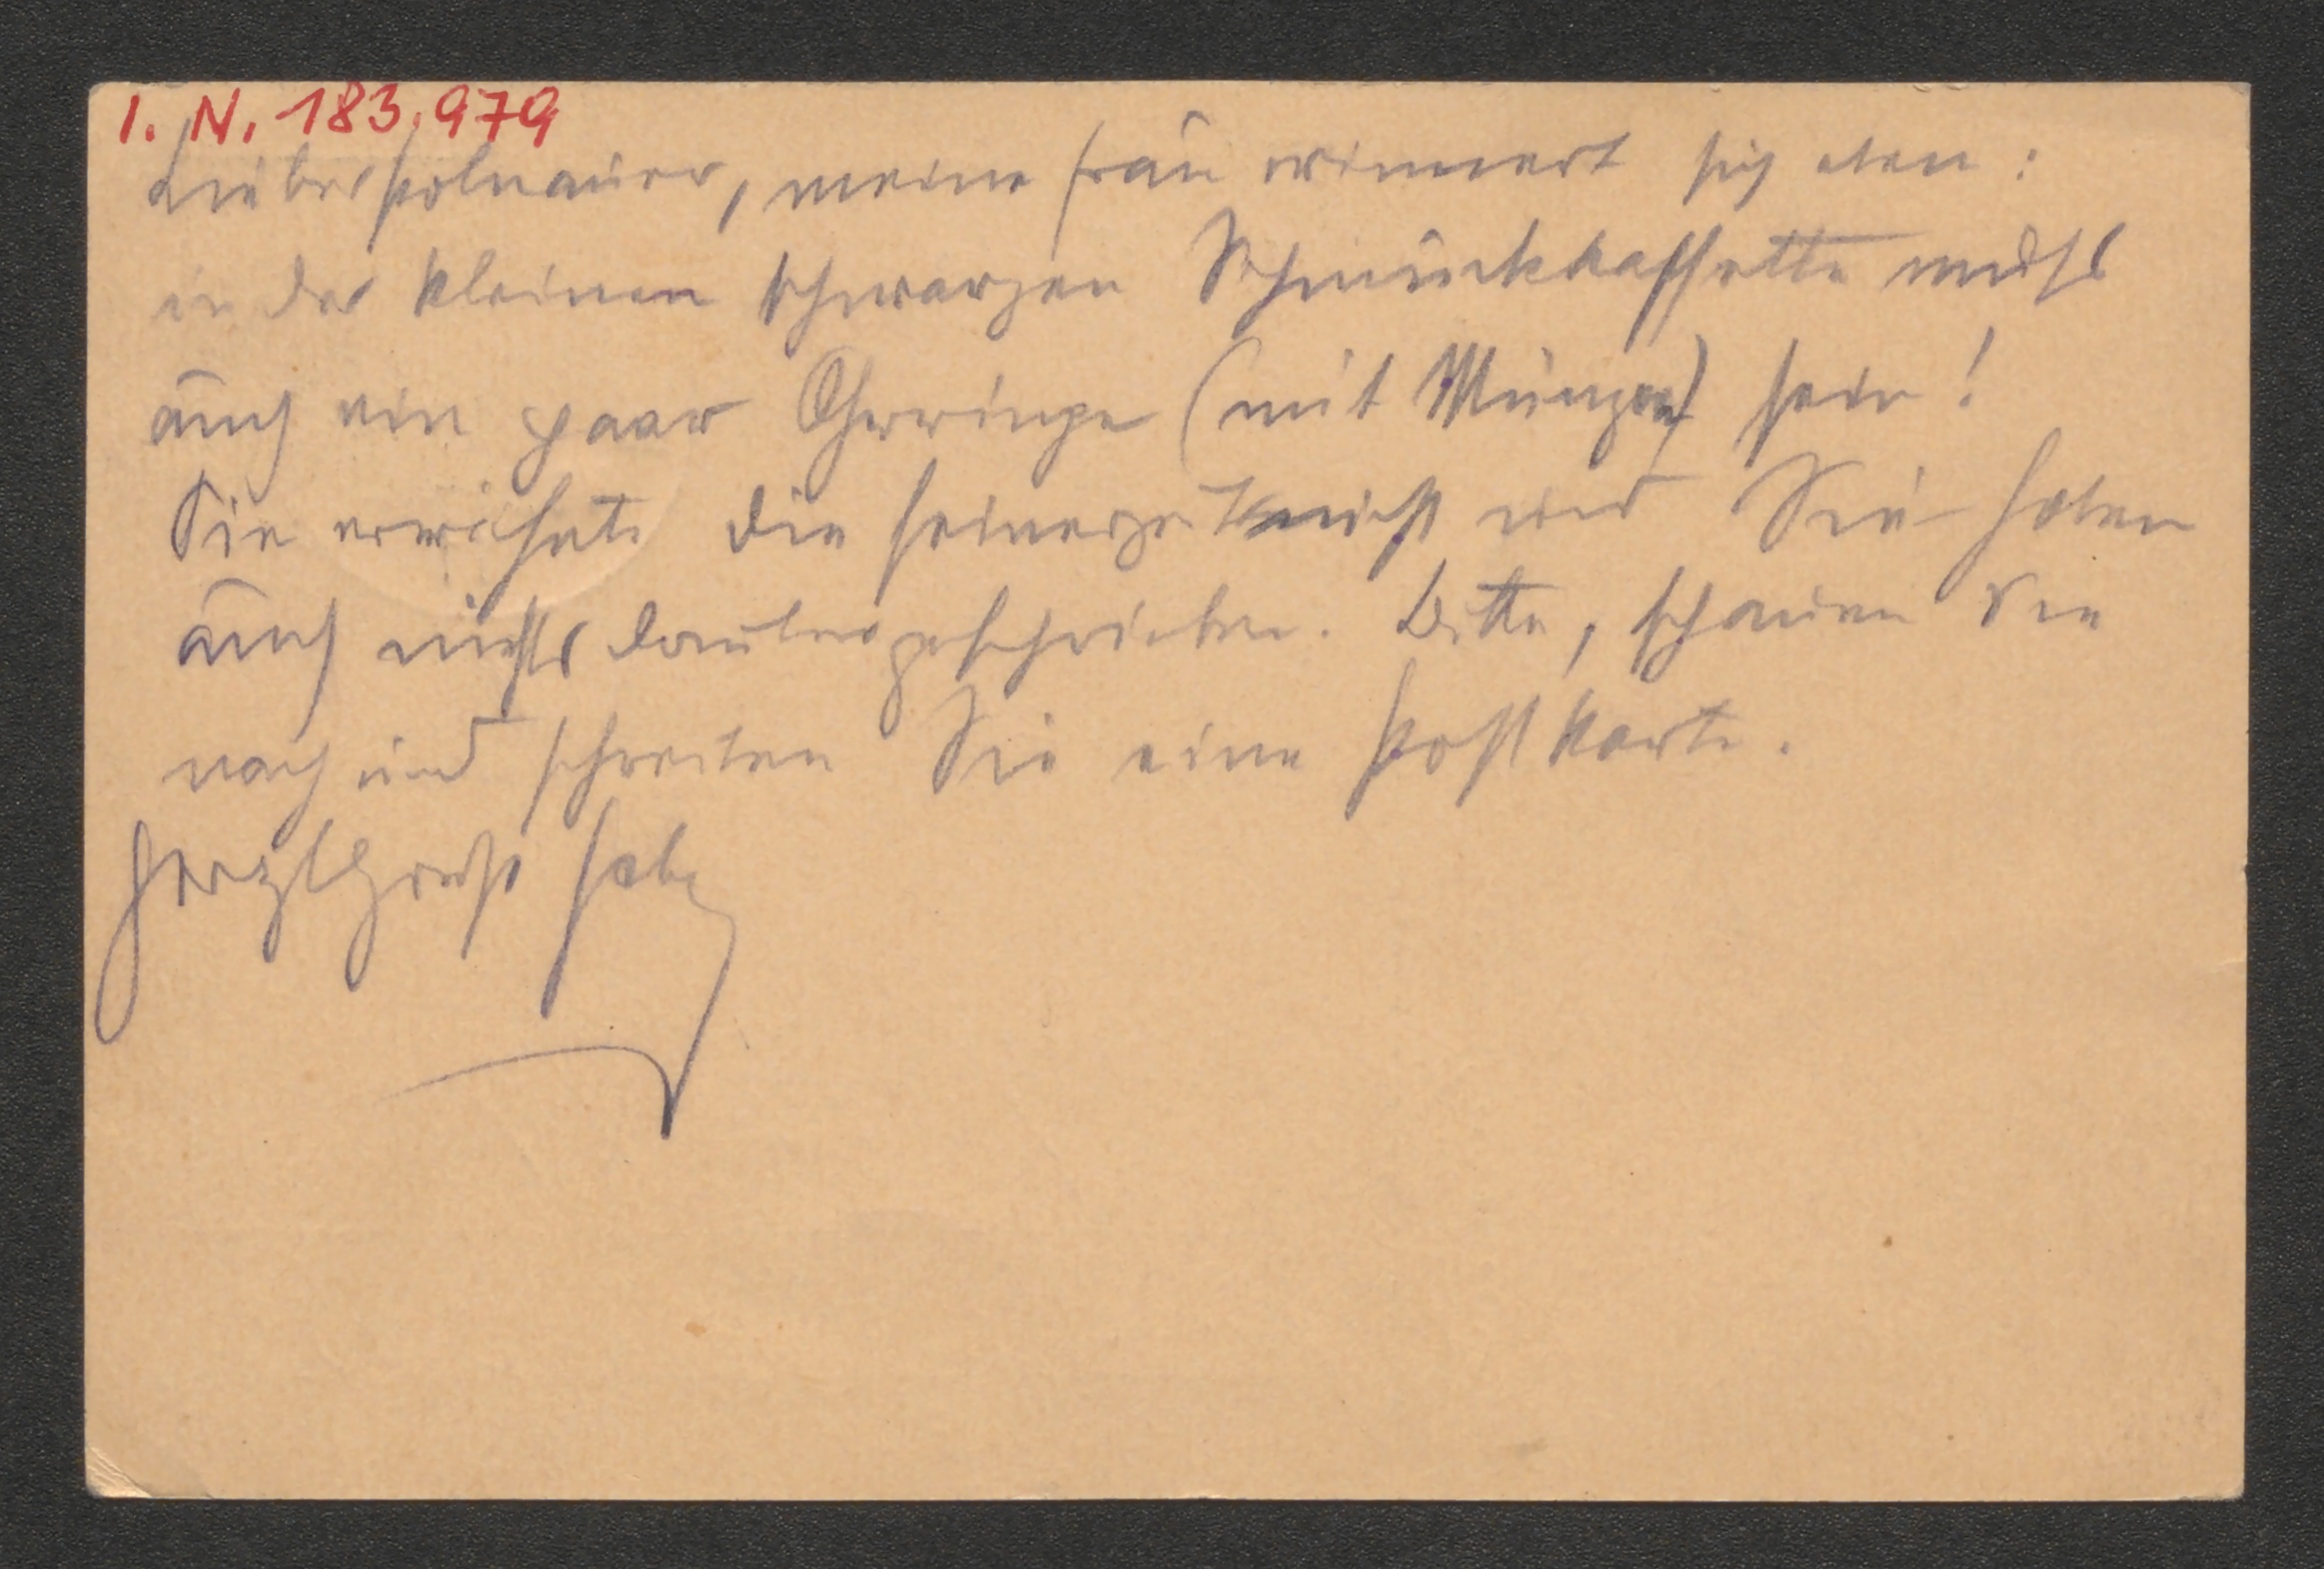 I. N. 183.979
Lieber Polnauer, meine Frau erinnert sich eben:
in der kleinen schwarzen Schmuckkassette muß
auch ein paar Ohrringe (mit Münzen) sein!
Sie erwähnte die seinerzeit nicht und Sie haben
auch nichts darüber geschrieben. Bitte, schauen Sie
nach und schreiben Sie eine Postkarte.
Herzl Gruß